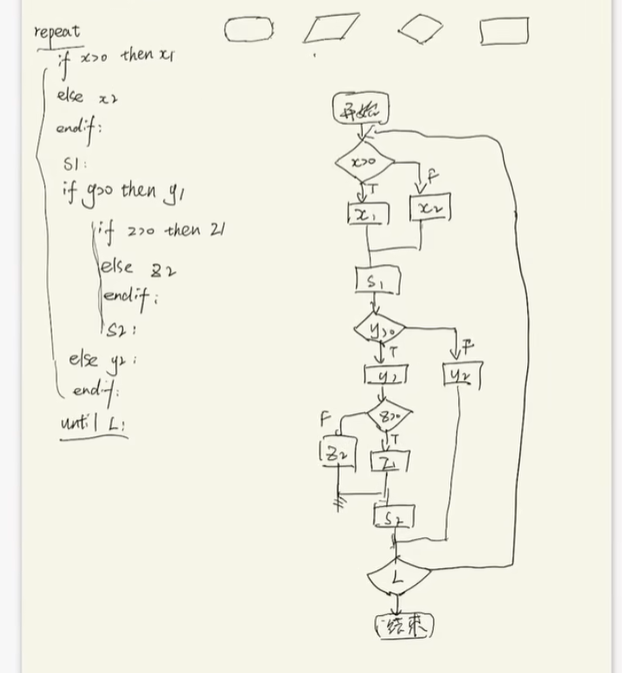 repeat
if x>0 then x1
else x2
endif:
S1:
if y>0 then y1
if z>0 then z1
else z2
endif;
S2:
else y2:
endif:
until L:
开始
x>0
T
F
x1
x2
S1
y>0
T
F
y1
y2
z>0
F
T
z2
z1
S2
L
结束